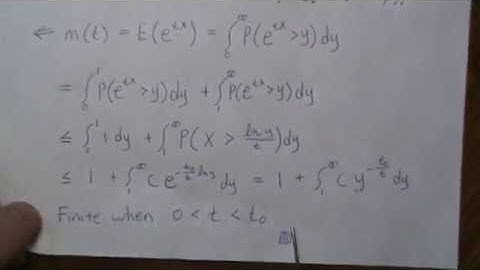 ⇐ m(t) = E(e^{tX}) = ∫_0^∞ P(e^{tX} > y) dy
= ∫_0^1 P(e^{tX} > y) dy + ∫_1^∞ P(e^{tX} > y) dy
≤ ∫_0^1 1 dy + ∫_1^∞ P(X > \frac{ln y}{t}) dy
≤ 1 + ∫_1^∞ C e^{-\frac{t_0}{t} ln y} dy = 1 + ∫_1^∞ C y^{-\frac{t_0}{t}} dy
Finite when 0 < t < t_0